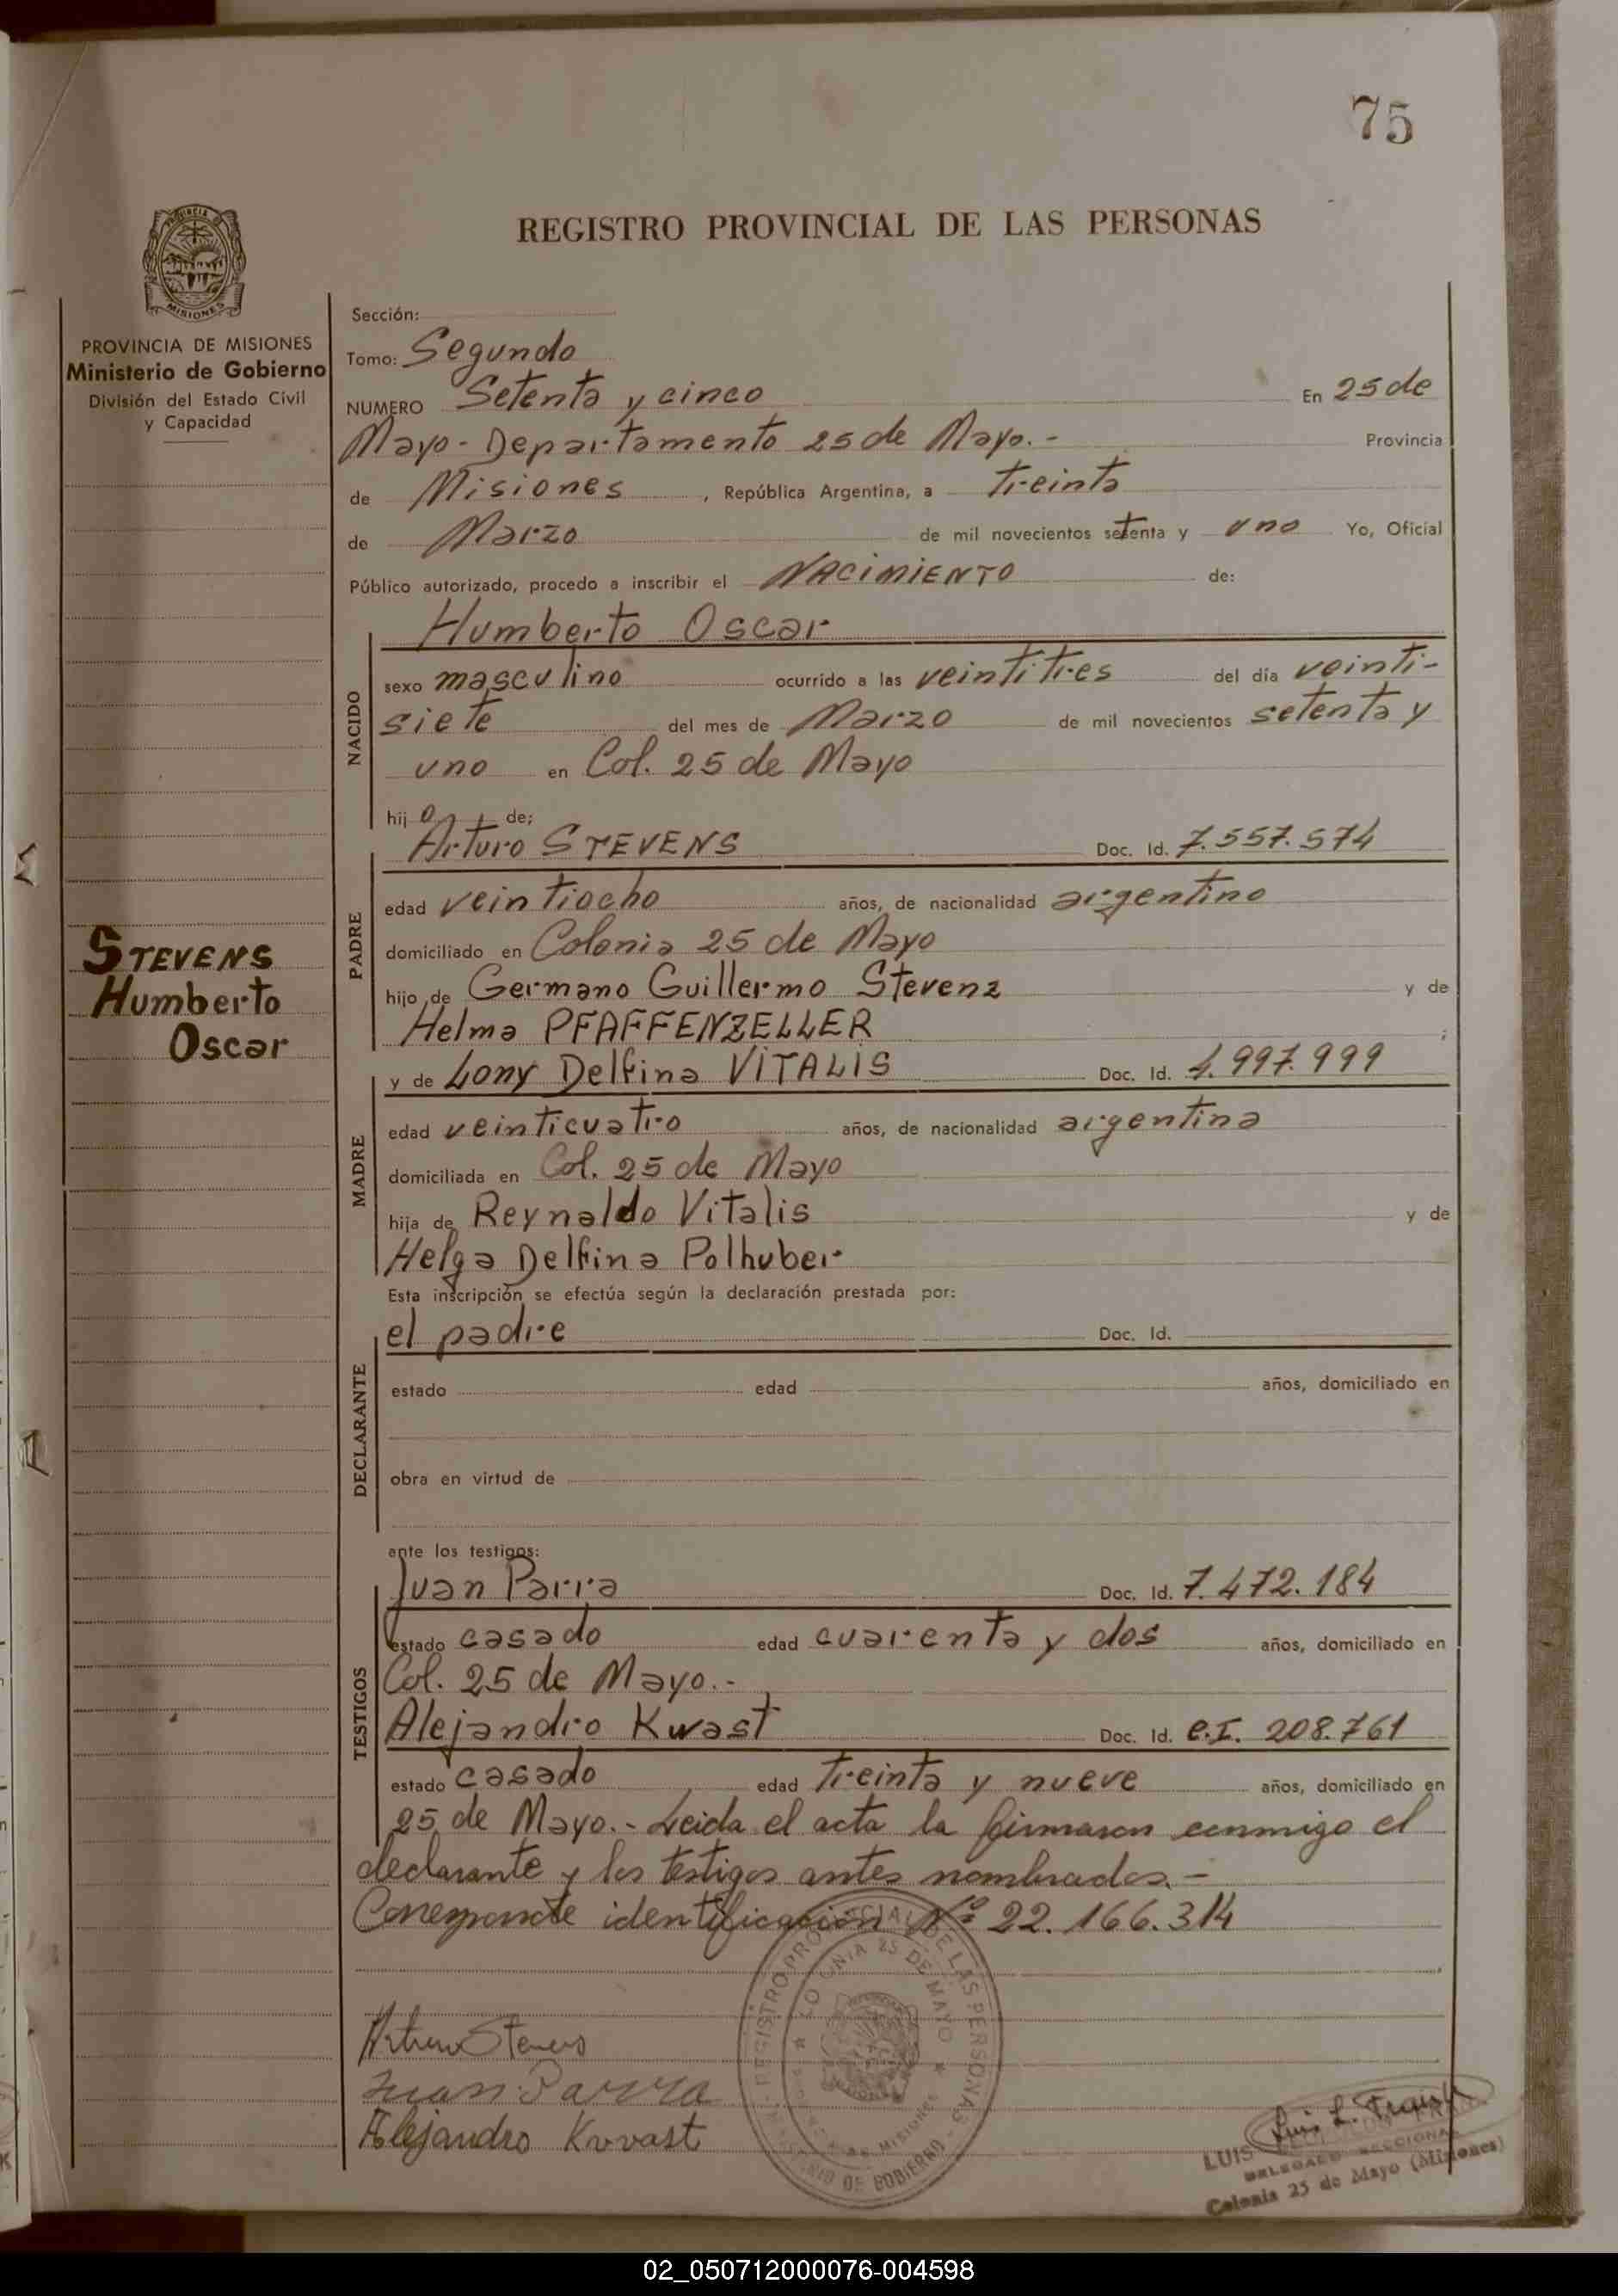 75
REGISTRO PROVINCIAL DE LAS PERSONAS
PROVINCIA
MISIONES
PROVINCIA DE MISIONES
Ministerio de Gobierno
División del Estado Civil
y Capacidad
STEVENS
Humberto
Oscar
Sección:
Tomo: Segundo
NUMERO Setenta y cinco En 25 de
Mayo - Departamento 25 de Mayo.- Provincia
de Misiones, República Argentina, a treinta
de Marzo de mil novecientos setenta y uno Yo, Oficial
Público autorizado, procedo a inscribir el NACIMIENTO de:
Humberto Oscar
NACIDO
sexo masculino ocurrido a las veintitres del día veinti-
siete del mes de Marzo de mil novecientos setenta y
uno en Col. 25 de Mayo
hijo de;
Arturo STEVENS Doc. Id. 7.557.574
PADRE
edad veintiocho años, de nacionalidad argentino
domiciliado en Colonia 25 de Mayo
hijo de Germano Guillermo Stevenz y de
Helma PFAFFENZELLER ;
y de Lony Delfina VITALIS Doc. Id. 4.997.999
MADRE
edad veinticuatro años, de nacionalidad argentina
domiciliada en Col. 25 de Mayo
hija de Reynaldo Vitalis y de
Helga Delfina Polhuber
Esta inscripción se efectúa según la declaración prestada por:
el padre Doc. Id.
DECLARANTE
estado edad años, domiciliado en
obra en virtud de
ante los testigos:
Juan Parra Doc. Id. 7.472.184
TESTIGOS
estado casado edad cuarenta y dos años, domiciliado en
Col. 25 de Mayo.-
Alejandro Kwast Doc. Id. C.I. 208.761
estado casado edad treinta y nueve años, domiciliado en
25 de Mayo.- Leida el acta la firmaron conmigo el
declarante y los testigos antes nombrados.-
Corresponde identificación Nº 22.166.314
Arturo Stevens
Juan Parra
Alejandro Kwast
REGISTRO PROVINCIAL DE LAS PERSONAS
COLONIA 25 DE MAYO
MISIONES
DE GOBIERNO
Luis L.
LUIS
DELEGADO SECCIONAL
Colonia 25 de Mayo (Misiones)
02_050712000076-004598